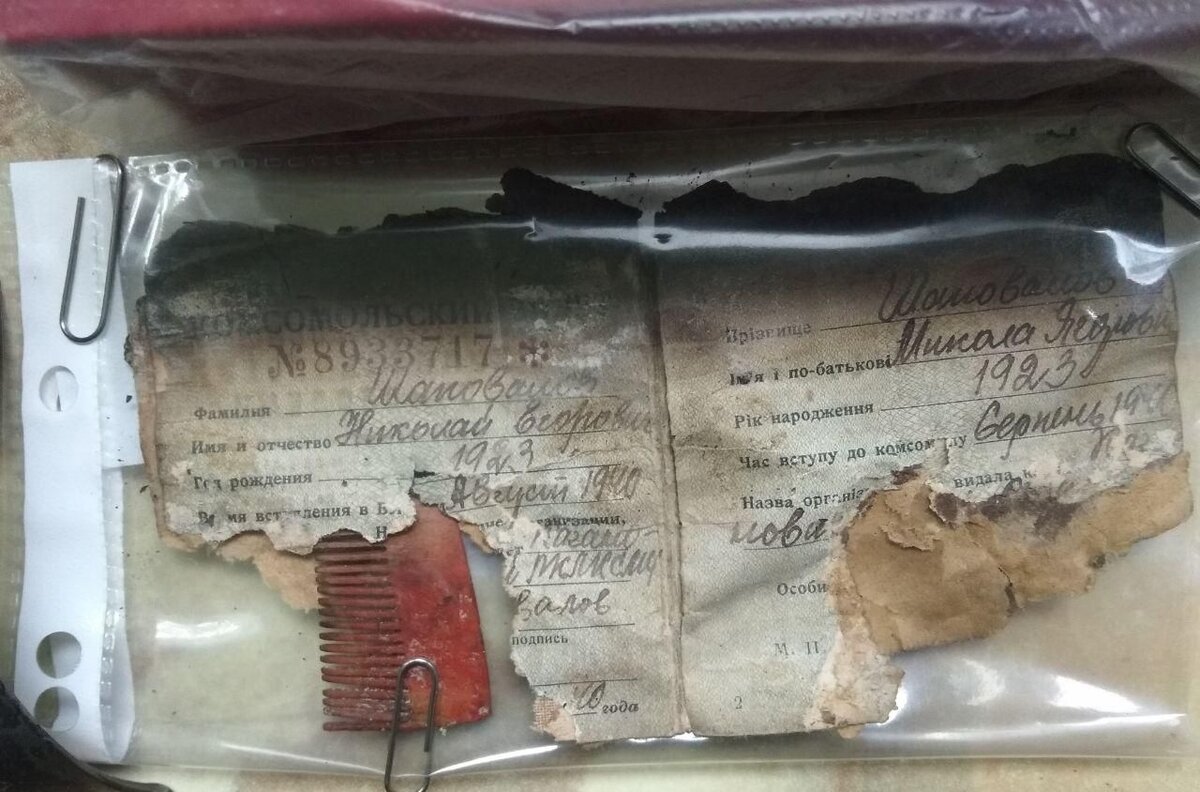 КОМСОМОЛЬСКИЙ
№ 8933717
Фамилия Шаповалов
Имя и отчество Николай Егорович
Год рождения 1923
Время вступления в В Август 1940
валов
подпись
40 года
Прізвище Шаповалов
Ім'я і по-батькові Микола Єгорович
Рік народження 1923
Час вступу до комсомолу Серпень 1940
Назва органі видала
Особи
М. П.
2